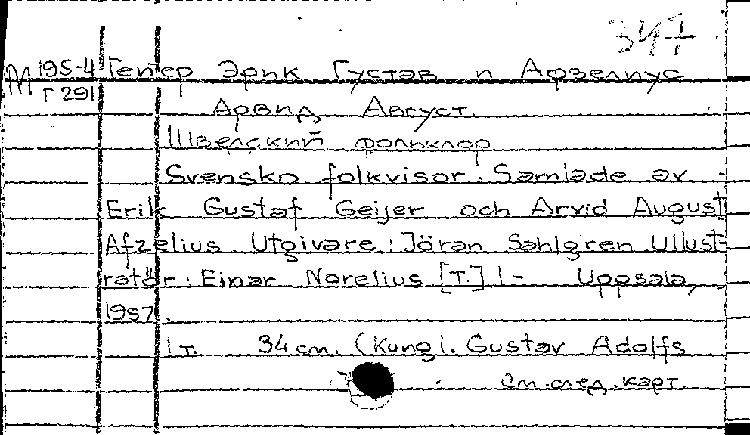 347
М 195-4 Гейер Эрик Густав и Арзелиус
Г 291
Арвид, Август.
Шведский фольклор
Svenska folkvisor. Samlade av
Erik Gustaf Geijer och Arvid August
Afzelius. Utgivare: Jöran Sahlgren Illust-
ratör: Einar Norelius [T.] 1- Uppsala,
1957.
1 т. 34 cm. (Kungl. Gustav Adolfs
См. след. карт.